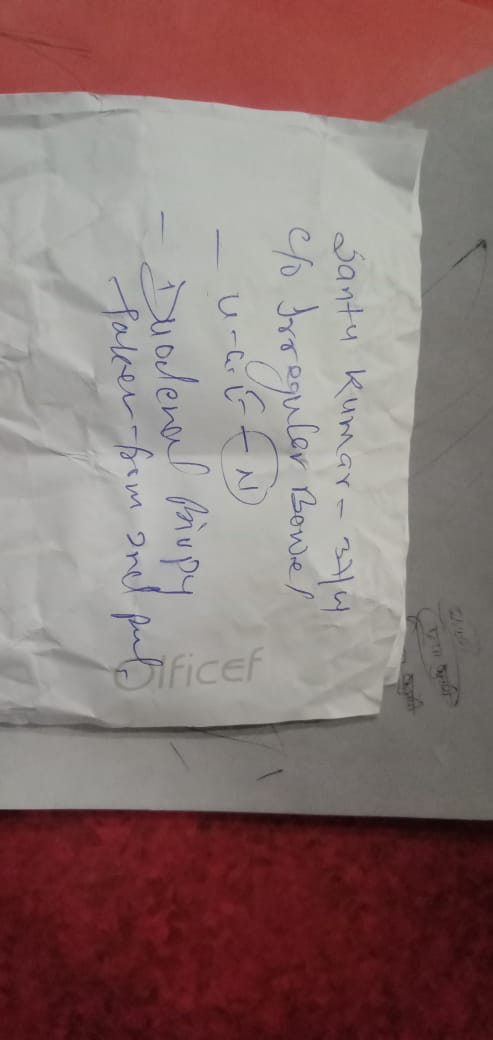 Santu Kumar - 37/y
c/o Irregular Bowel
- U-G.E - N
- Duodenal Biopy
taken from 2nd part
Olficef